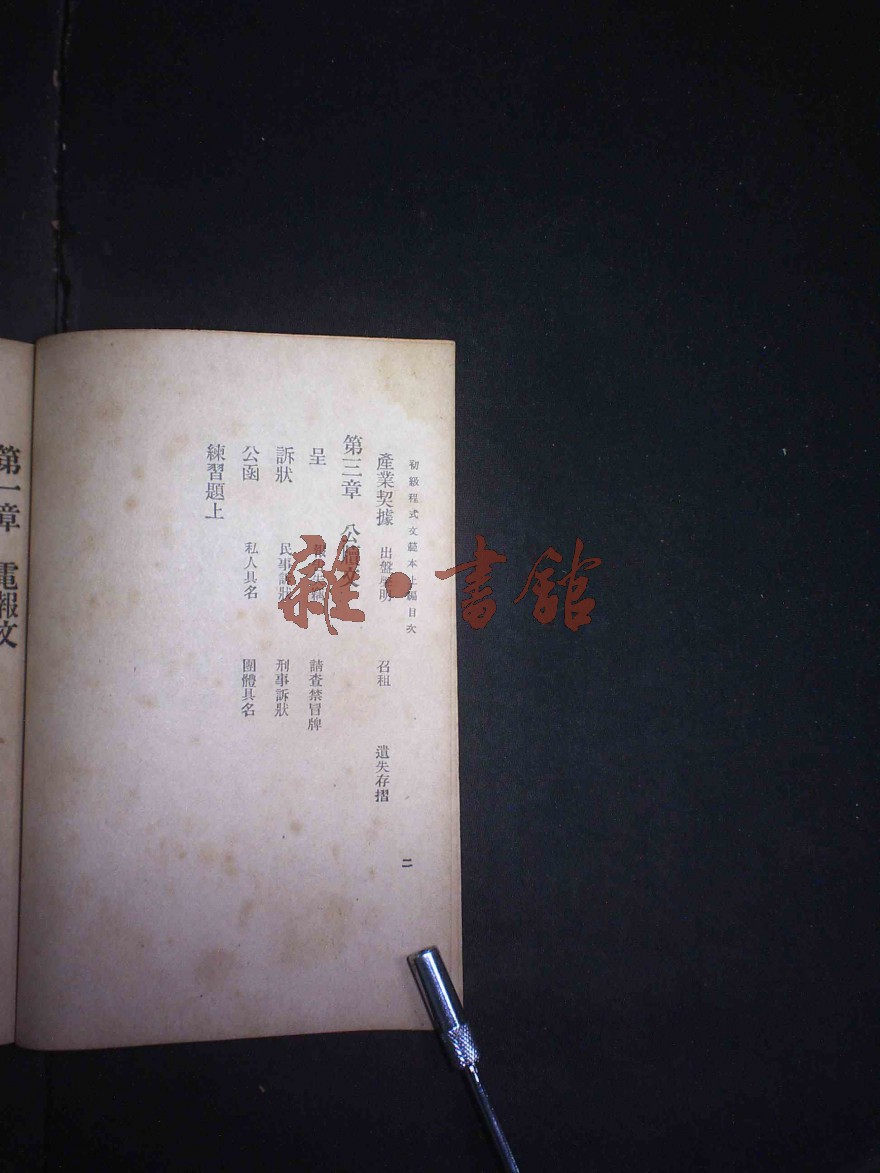 初級程式文範本上編目次
二
產業契據 出盤聲明 召租 遺失存摺
第三章 公牘文
呈 請查禁冒牌
訴狀 民事訴狀 刑事訴狀
公函 私人具名 團體具名
練習題上
第一章 電報文
雜·書館